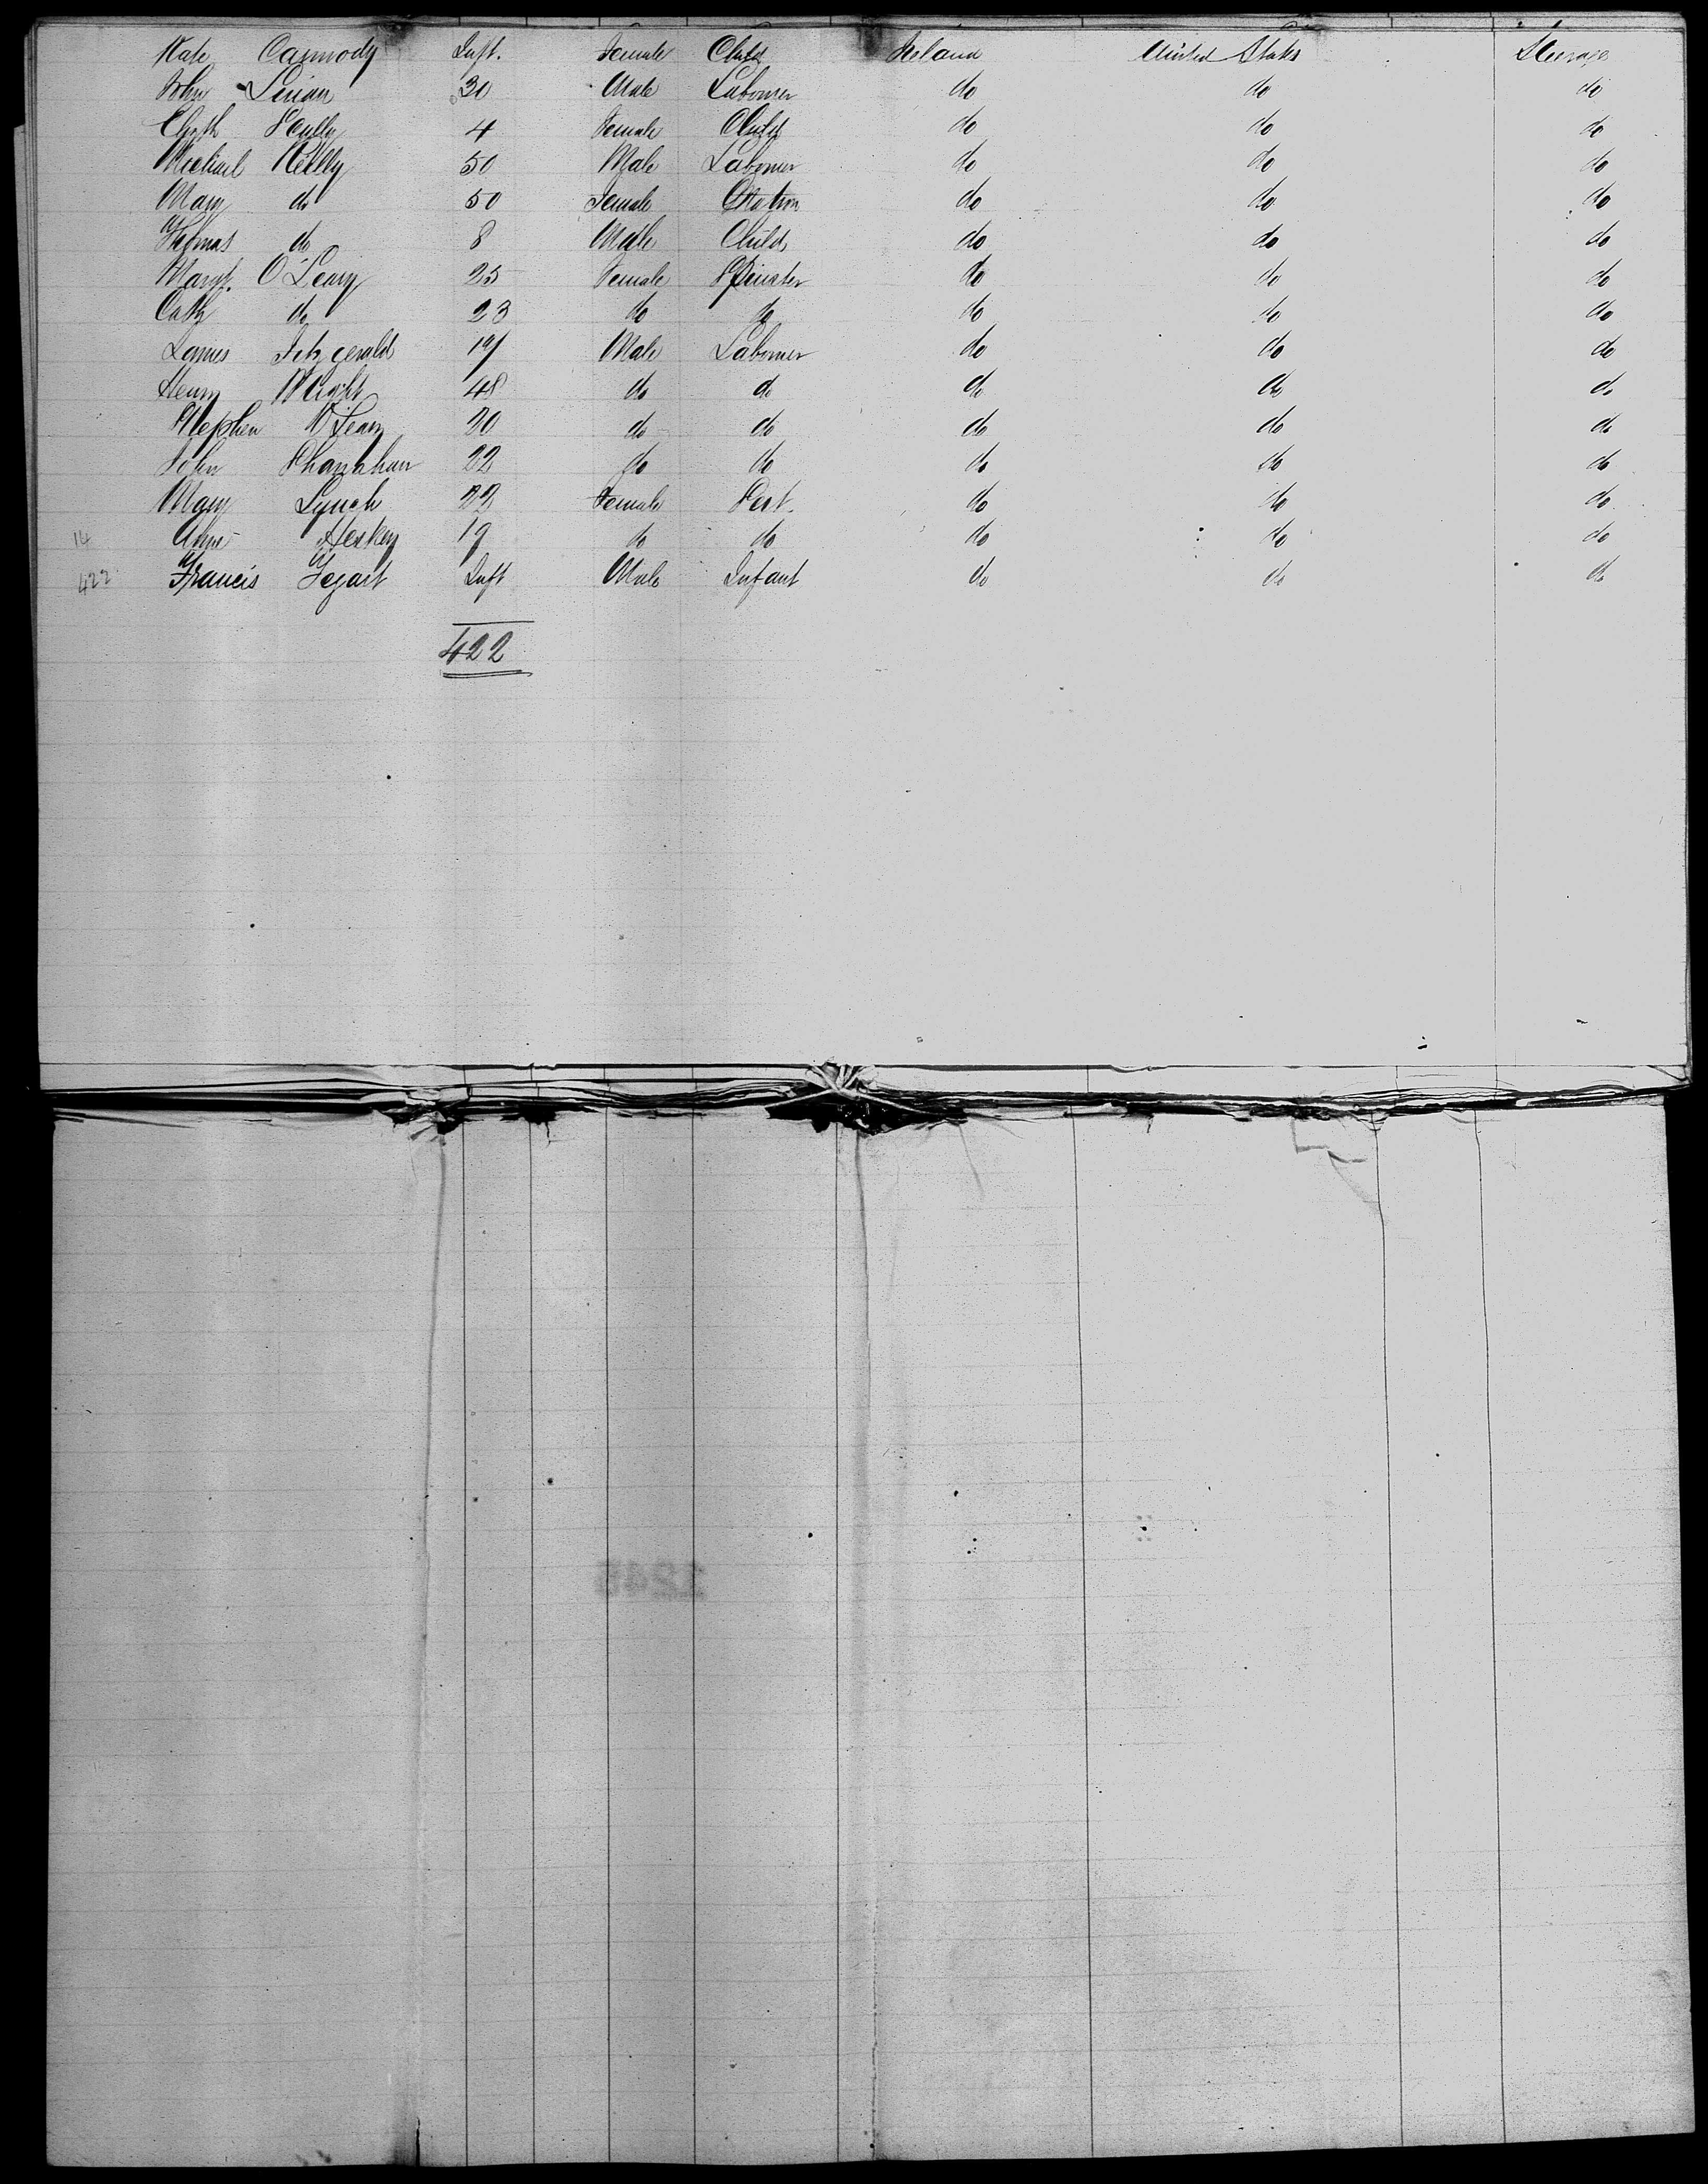 Kate Carmody Inft. Female Child Ireland United States Steerage
John 30 Male Laborer do do do
Elizth Scully 4 Female Child do do do
Michael Kelly 50 Male Laborer do do do
Mary do 50 Female Matron do do do
Thomas do 8 Male Child do do do
Margt. O'Leary 25 Female Spinster do do do
Cath do 23 do do do do do
James Fitzgerald 19 Male Laborer do do do
Henry Wright 48 do do do do do
Stephen 20 do do do do do
John Shanahan 22 do do do do do
Mary Lynch 22 Female Sert. do do do
14 Anne 19 do do do do do
422 Francis Inft Male Infant do do do
422
1245